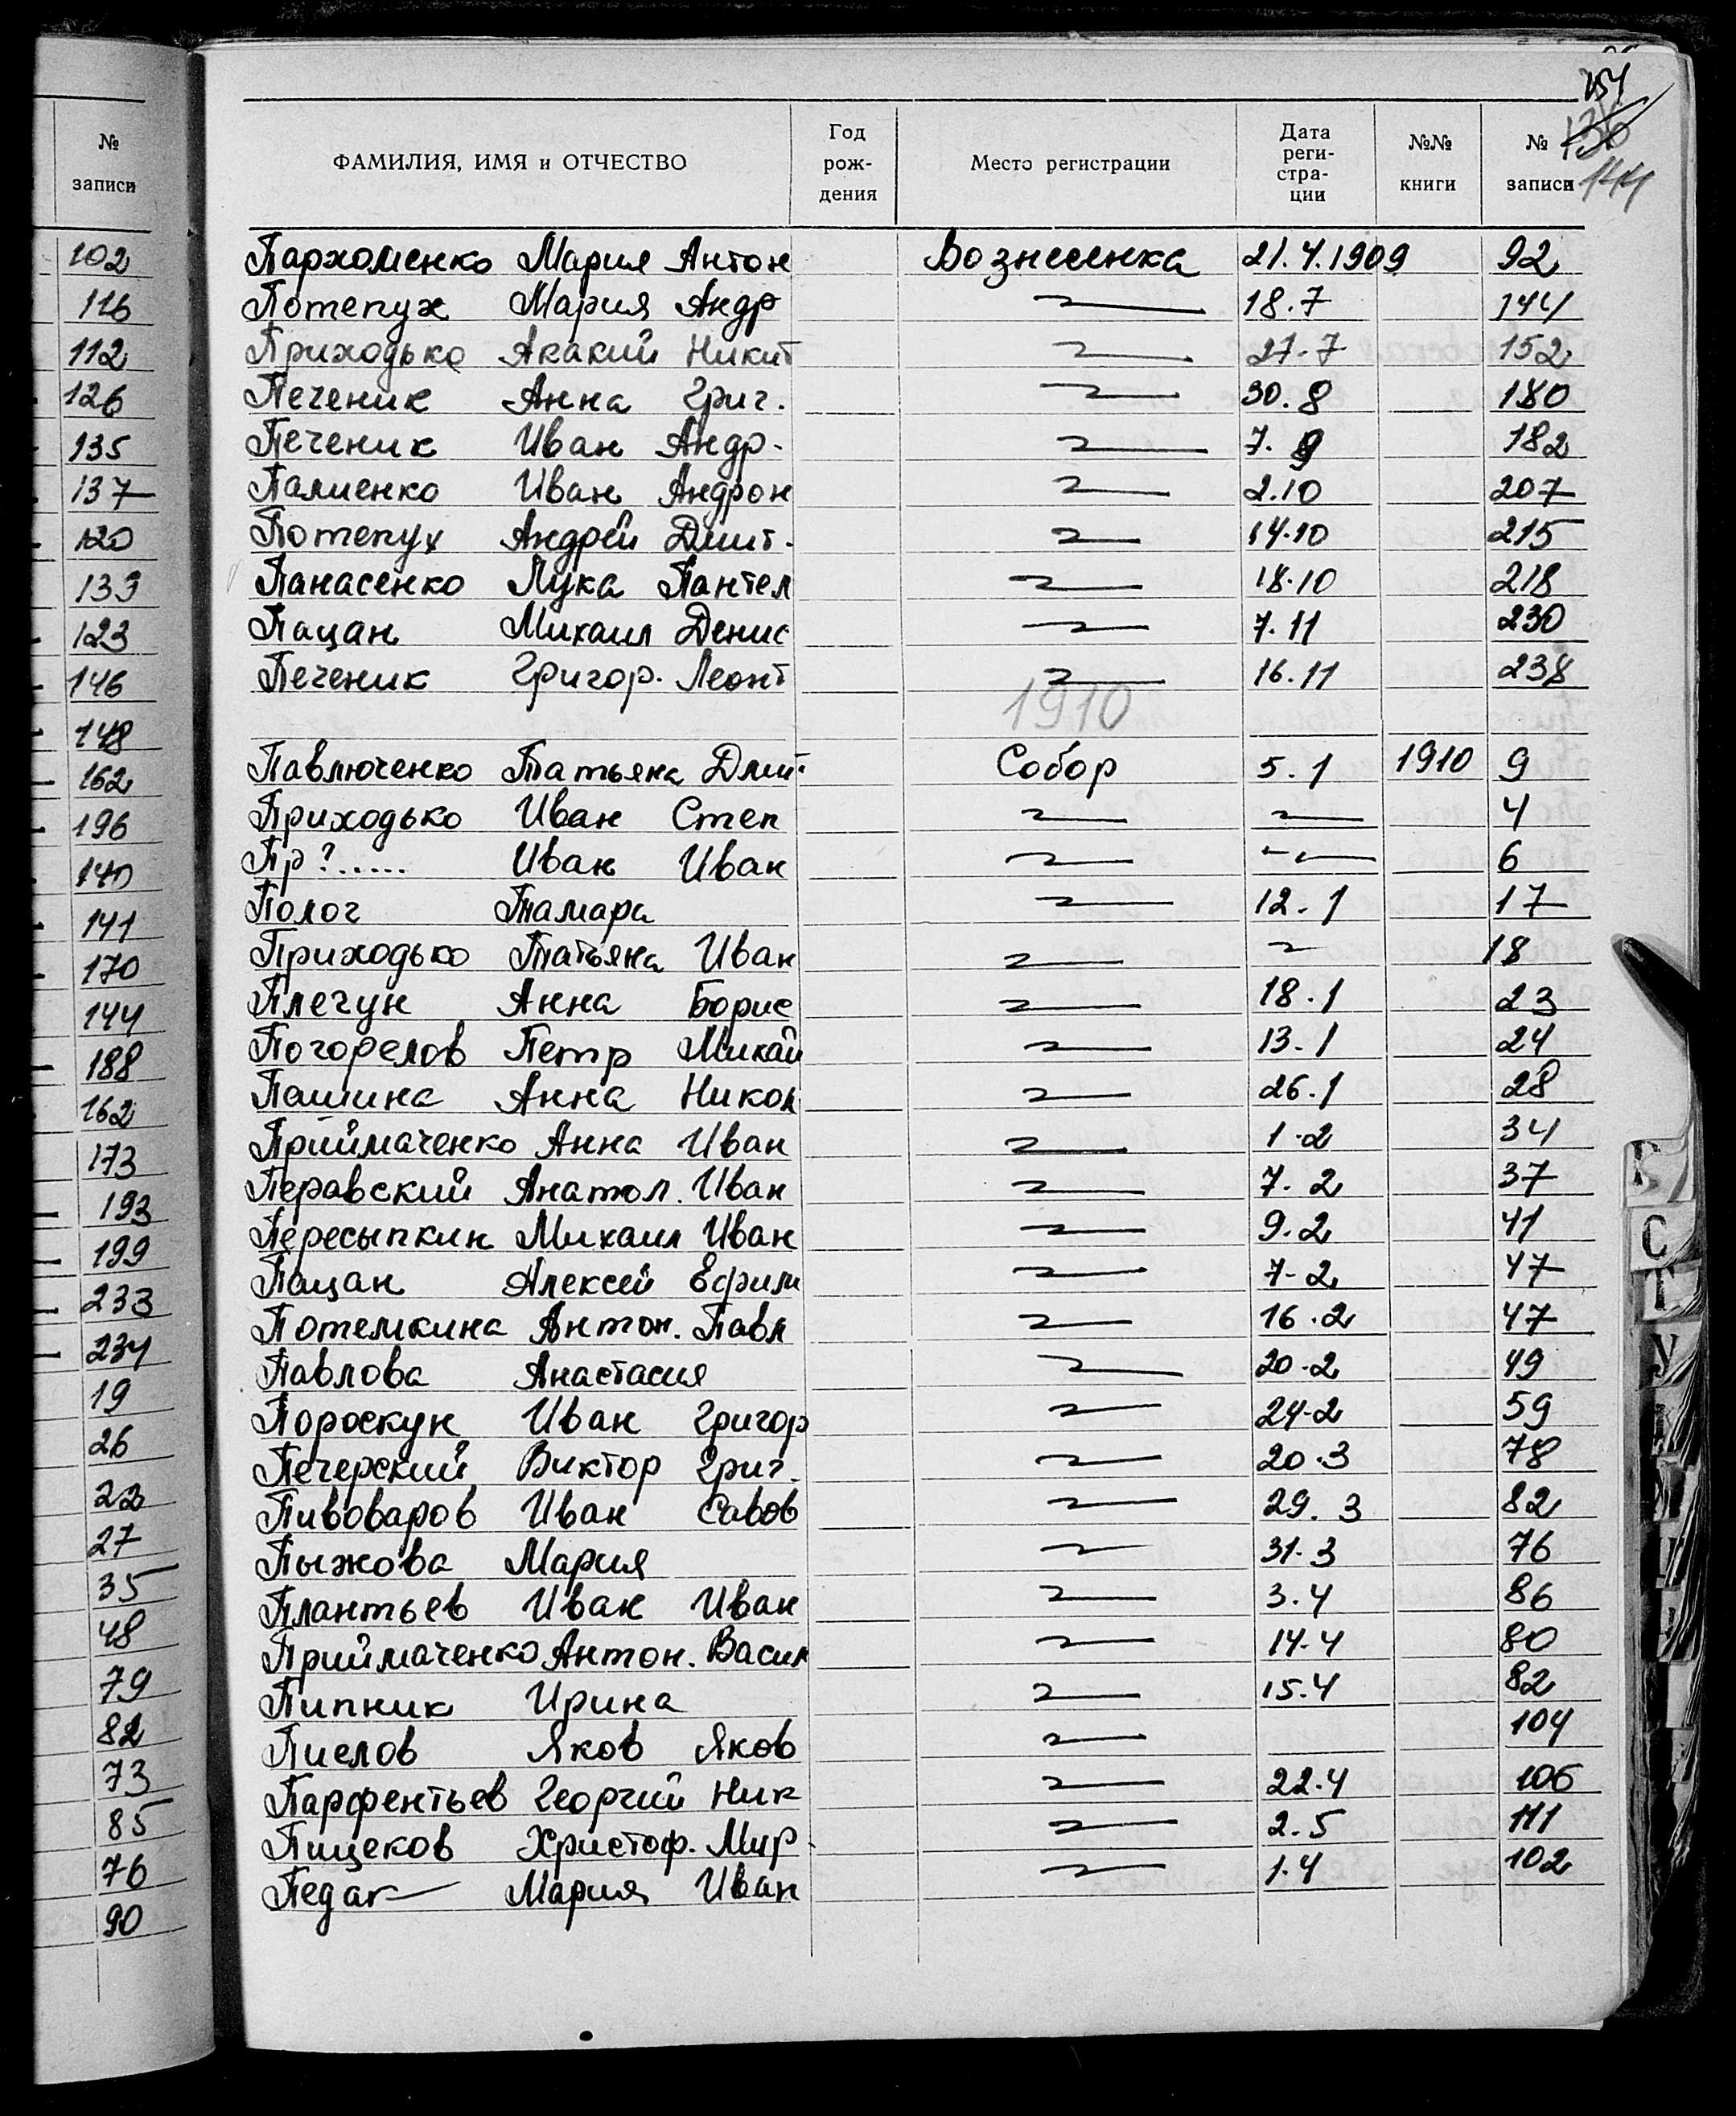 №
записи
102
116
112
126
135
137
120
133
123
146
148
162
196
140
141
170
144
188
162
173
193
199
233
234
19
26
22
27
35
48
79
82
73
85
76
90
154
136
144
ФАМИЛИЯ, ИМЯ и ОТЧЕСТВО Год рож- дения Место регистрации Дата реги- стра- ции №№ книги № записи
Пархоменко Мария Антон Вознесенка 21.4.1909 92
Потепух Мария Андр 18.7 144
Приходько Акакий Никит 27.7 152
Печеник Анна Григ. 30.8 180
Печеник Иван Андр. 7.9 182
Палиенко Иван Андрон 2.10 207
Потепух Андрей Дмит. 14.10 215
Панасенко Лука Пантел 18.10 218
Пацан Михаил Денис 7.11 230
Печеник Григор. Леонт 16.11 238
1910
Павлюченко Татьяна Дмит. Собор 5.1 1910 9
Приходько Иван Степ 4
Пр?..... Иван Иван 6
Полог Тамара 12.1 17
Приходько Татьяна Иван 18
Плечун Анна Борис 18.1 23
Погорелов Петр Михай 13.1 24
Пашина Анна Никол 26.1 28
Приймаченко Анна Иван 1.2 34
Перавский Анатол. Иван 7.2 37
Пересыпкин Михаил Иван 9.2 41
Пацан Алексей Ефим 7-2 47
Потемкина Антон. Павл 16.2 47
Павлова Анастасия 20.2 49
Пороскун Иван Григор 24-2 59
Печерский Виктор Григ. 20.3 78
Пивоваров Иван Савов 29.3 82
Пыжова Мария 31.3 76
Плантьев Иван Иван 3.4 86
Приймаченко Антон. Васил 14.4 80
Пипник Ирина 15.4 82
Пислов Яков Яков 104
Парфентьев Георгий Ник 22.4 106
Пищеков Христоф. Мир. 2.5 111
Педак Мария Иван 1.4 102
С
Т
У